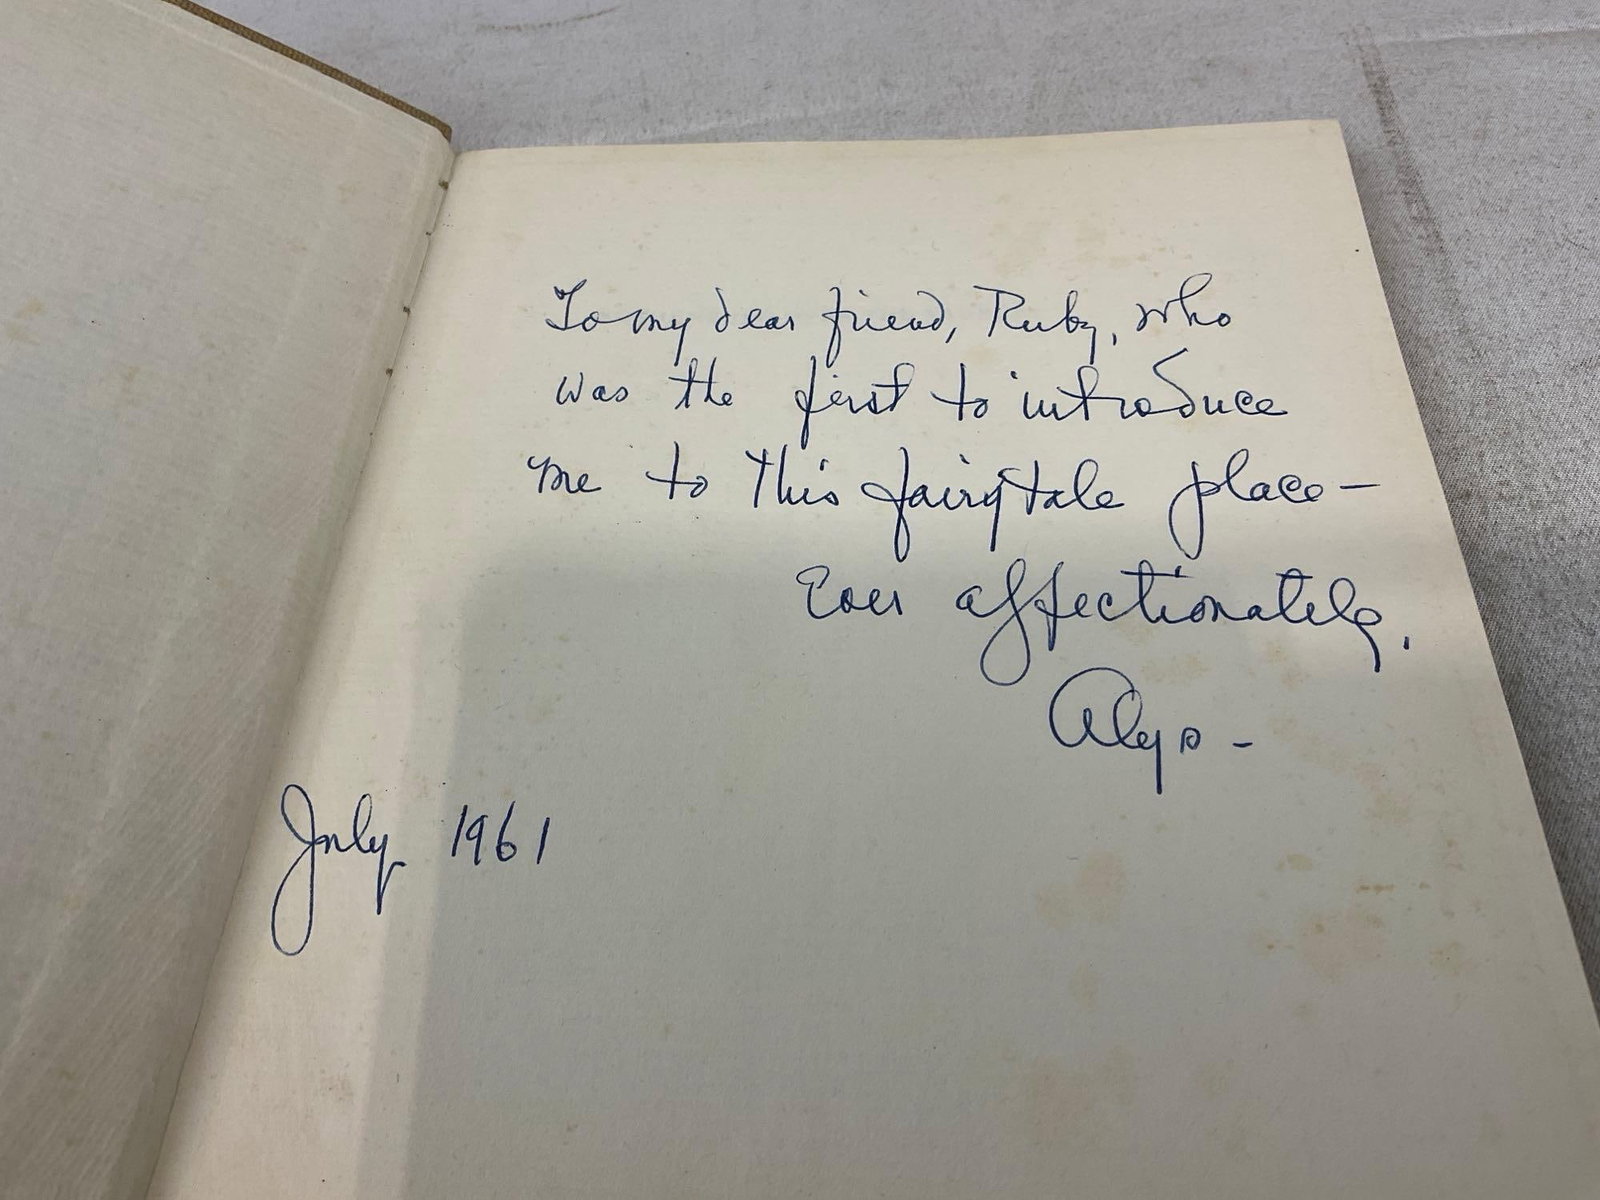 To my dear friend, Ruby, who
was the first to introduce
me to this fairytale place—
Ever affectionately,
Alys –
July 1961